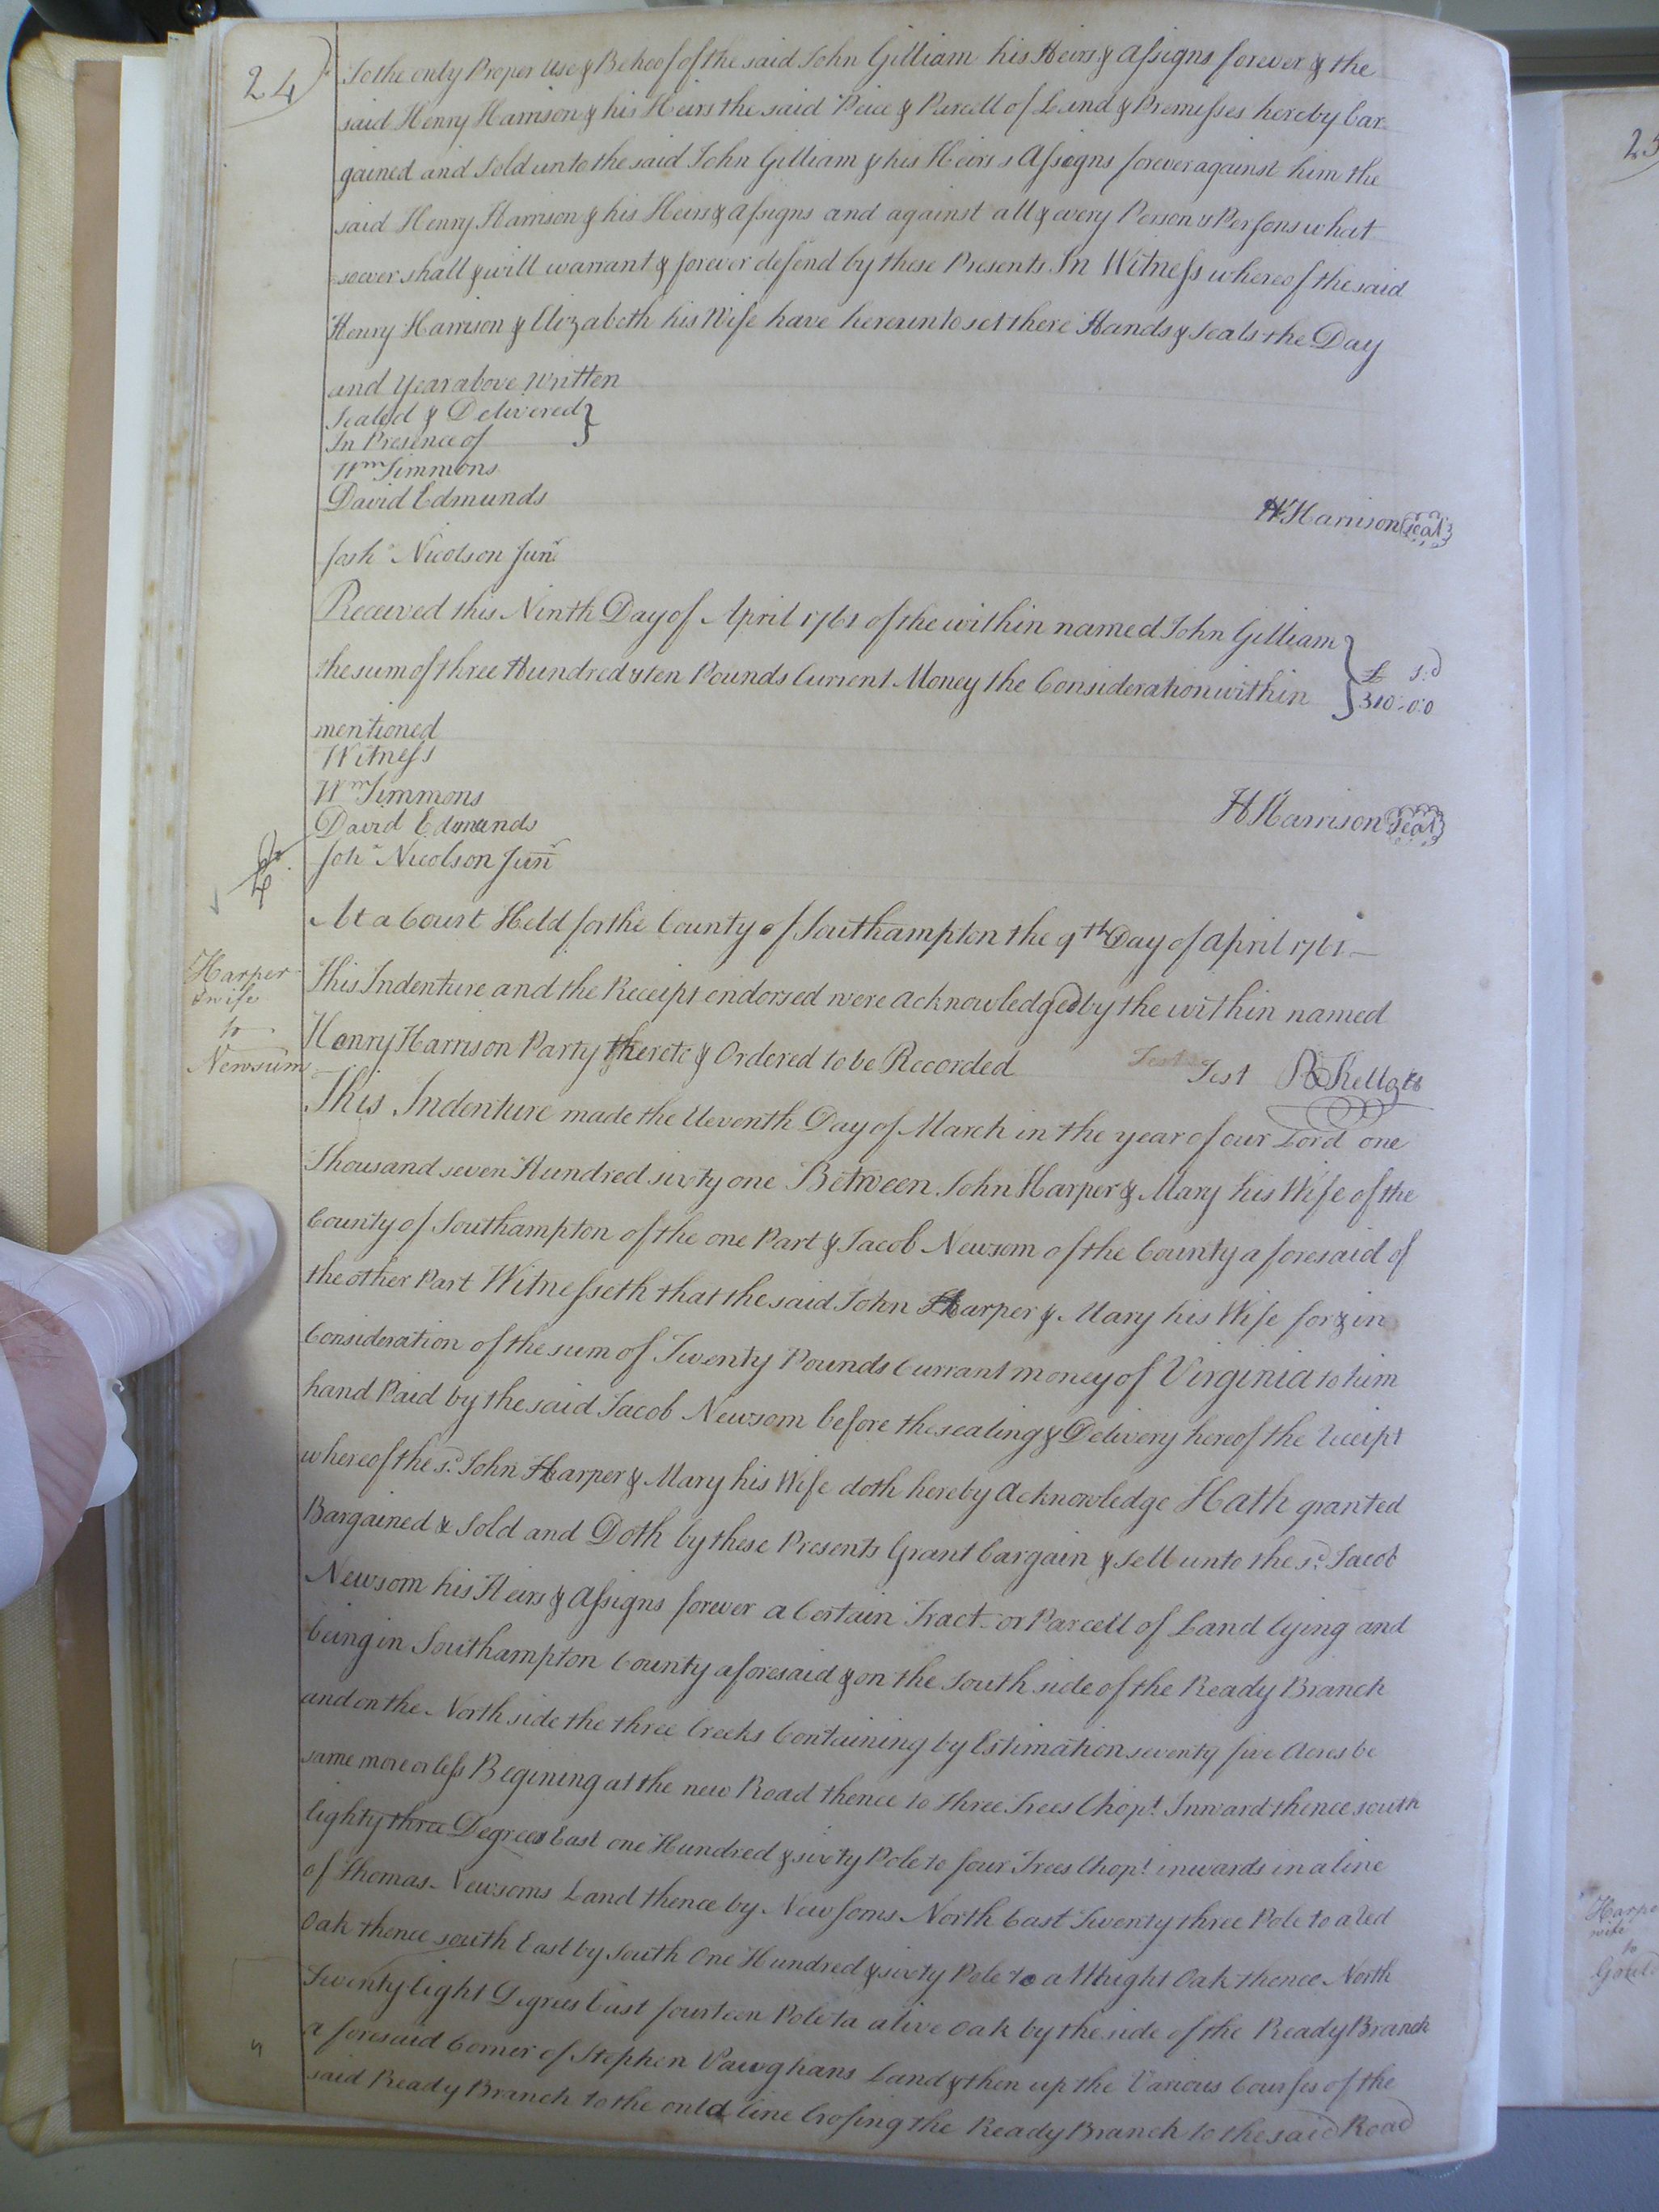 24
To the only Proper Use & Behoof of the said John Gilliam his Heirs & Assigns forever & the
said Henry Harrison & his Heirs the said Peice & Parcell of Land & Premisses hereby bar
gained and sold unto the said John Gilliam & his Heirs & Assigns forever against him the
said Henry Harrison & his Heirs & Assigns and against all & every Person & Persons what
soever shall & will warrant & forever defend by these Presents In Witness whereof the said
Henry Harrison & Elizabeth his Wife have hereunto set there Hands & Seals the Day
and Year above Written
Sealed & Delivered
In Presence of
Wm Simmons
David Edmunds
H Harrison seal
Nicolson Junr
Received this Ninth Day of April 1761 of the within named John Gilliam
the sum of three Hundred & ten Pounds Current Money the Consideration within
£ s:d
310:0:0
mentioned
Witness
Wm Simmons
David Edmunds
H Harrison seal
Nicolson Junr
At a Court Held for the County of Southampton the 9th Day of April 1761
This Indenture and the Receipt endorsed were acknowledged by the within named
Henry Harrison Party thereto & Ordered to be Recorded
Test Test R Kello
Harper
& wife
to
Newsum
This Indenture made the Eleventh Day of March in the year of our Lord one
Thousand seven Hundred sixty one Between John Harper & Mary his Wife of the
County of Southampton of the one Part & Jacob Newsom of the County aforesaid of
the other Part Witnesseth that the said John Harper & Mary his Wife for & in
Consideration of the sum of Twenty Pounds Currant money of Virginia to him
hand Paid by the said Jacob Newsom before the sealing & Delivery hereof the Receipt
whereof the sd. John Harper & Mary his Wife doth hereby Acknowledge Hath granted
Bargained & Sold and Doth by these Presents Grant bargain & sell unto the sd. Jacob
Newsom his Heirs & Assigns forever a Certain Tract or Parcell of Land lying and
being in Southampton County aforesaid & on the South side of the Ready Branch
and on the North side the three Creeks Containing by Estimation seventy five Acres be
same more or less Begining at the new Road thence to three Trees Chopt Inward thence south
Eighty three Degrees East one Hundred & sixty Pole to four Trees Chopt inwards in a line
of Thomas Newsoms Land thence by Newsoms North East Twenty three Pole to a Red
Oak thence south East by South One Hundred & sixty Pole to a Whight Oak thence North
Twenty Eight Degrees East fourteen Pole to a live Oak by the side of the Ready Branch
aforesaid Corner of Stephen Vaughans Land & then up the Various Courses of the
said Ready Branch to the ould line Crosing the Ready Branch to the said Road
25
Harpe
wife
to